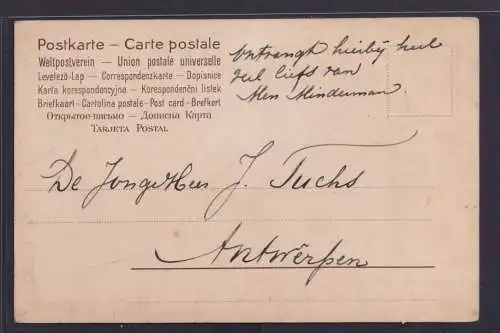 Postkarte – Carte postale
Weltpostverein – Union postale universelle
Levelező-Lap – Correspondenzkarte – Dopisnice
Karta korespondencyjna – Korespondenčni listek
Briefkaart – Cartolina postale – Post card – Brefkort
Открытое письмо – Дописна Карта
Tarjeta Postal
Ontvangt hierbij heel
veel liefs van
Mien Minderman.
De Jongeheer J. Fuchs
Antwerpen